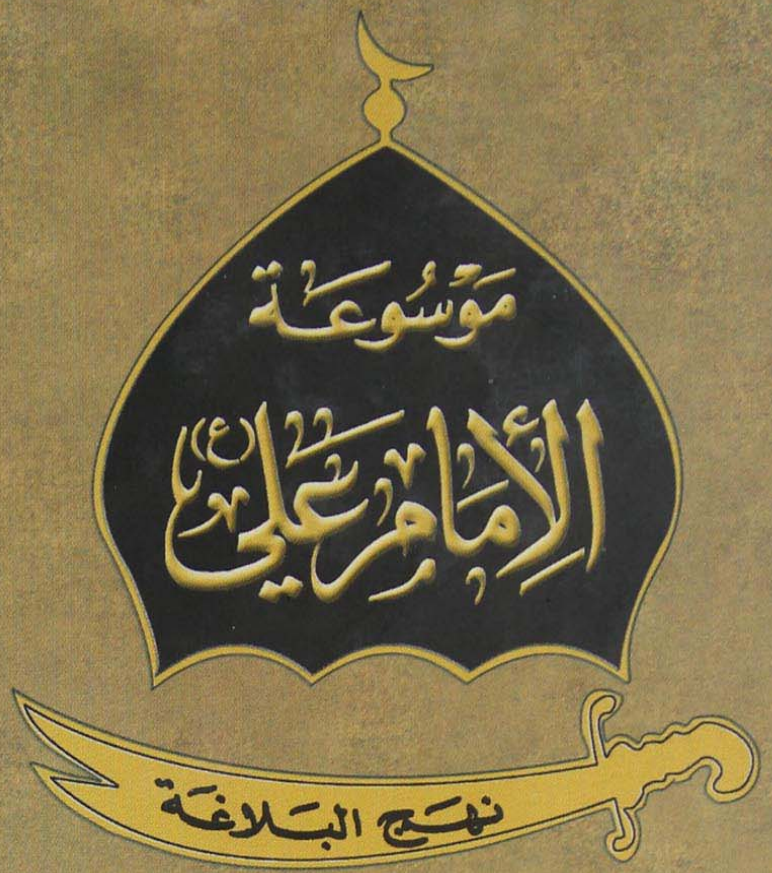 مَوْسُوعَة
الإِمَام عَلي (ع)
نهَج البَلاغَة